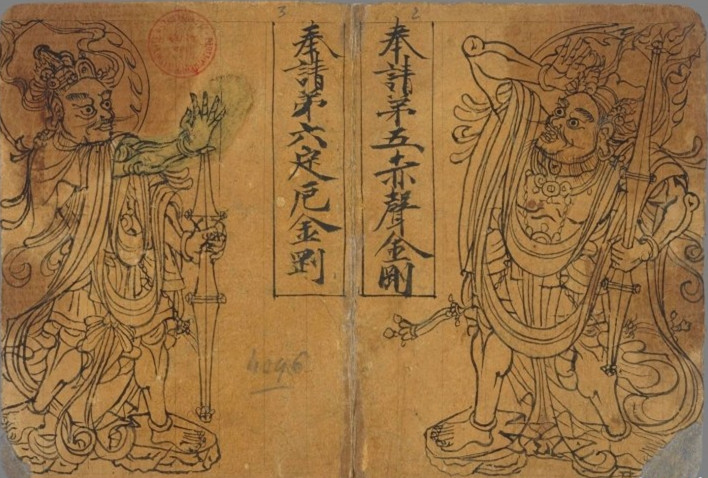 2
奉請苐五赤聲金剛
3
奉請第六定厄金剛
4096